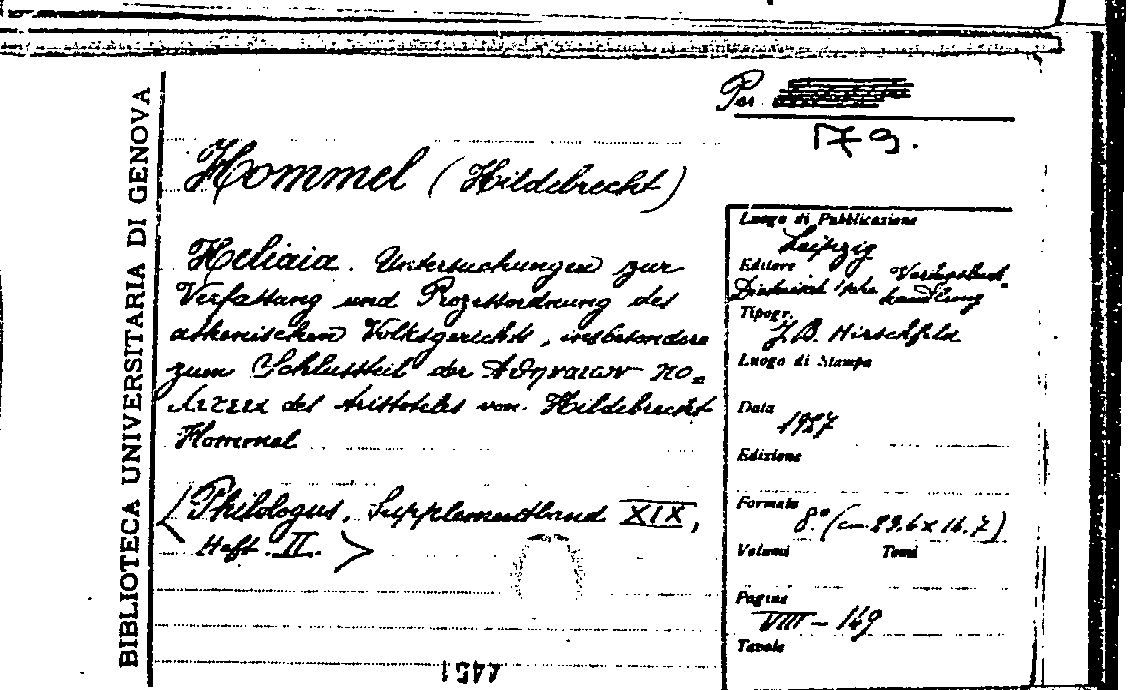 BIBLIOTECA UNIVERSITARIA DI GENOVA
Per.
179.
Hommel (Hildebrecht)
Heliaia. Untersuchungen zur
Verfassung und Prozessordnung des
athenischen Volksgerichts, insbesondere
zum Schlussteil der Ἀθηναίων πο=
λιτεία des Aristoteles von Hildebrecht
Hommel
<Philologus, Supplementband XIX,
Heft. II.>
Luogo di Pubblicazione
Leipzig
Editore
Dieterich'sche Verlagsbuch-
handlung
Tipogr.
J. B. Hirschfeld
Luogo di Stampa
Data
1927
Edizione
Formato
8.° (cm. 23.6 x 16.7)
Volumi Tomi
Pagine
VIII - 149
Tavole